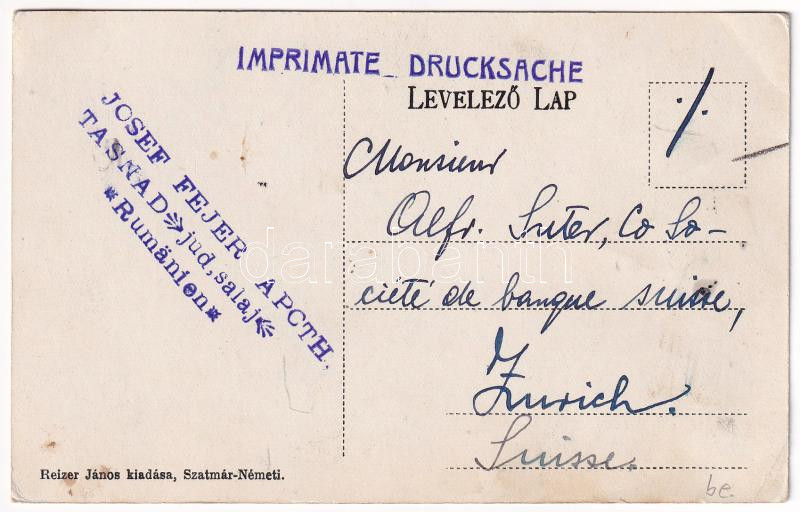 IMPRIMATE DRUCKSACHE
LEVELEZŐ LAP
·/·
JOSEF FEJER APCTH.
TASNAD jud, salaj
*Rumänien*
Monsieur
Alfr. Suter, Co So-
ciété de banque suisse,
Zurich.
Suisse.
Reizer János kiadása, Szatmár-Németi.
be.
darabanth